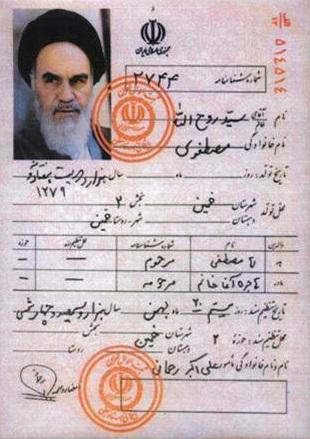 جمهوری اسلامی ایران
۵۱۴۵۱۴
شماره شناسنامه ۲۷۴۴
نام آقای خانم سید روح الله
نام خانوادگی مصطفوی
تاریخ تولد: روز ماه سال هزار و دویست و هفتاد و نه
۱۲۷۹
محل تولد شهرستان خمین بخش ۲
دهستان شهر - روستا خمین
والدین نام شماره شناسنامه محل تنظیم سند حوزه
پدر آقا مصطفی مرحوم
مادر هاجره آقا خانم مرحومه
تاریخ تنظیم سند: روز بیستم ۲۰ ماه بهمن سال هزار و سیصد و چهار شمسی
محل تنظیم سند: حوزه ۲ شهرستان خمین بخش
دهستان روستا
نام و نام خانوادگی مأمور علی اکبر رحمانی
امضاء و مهر